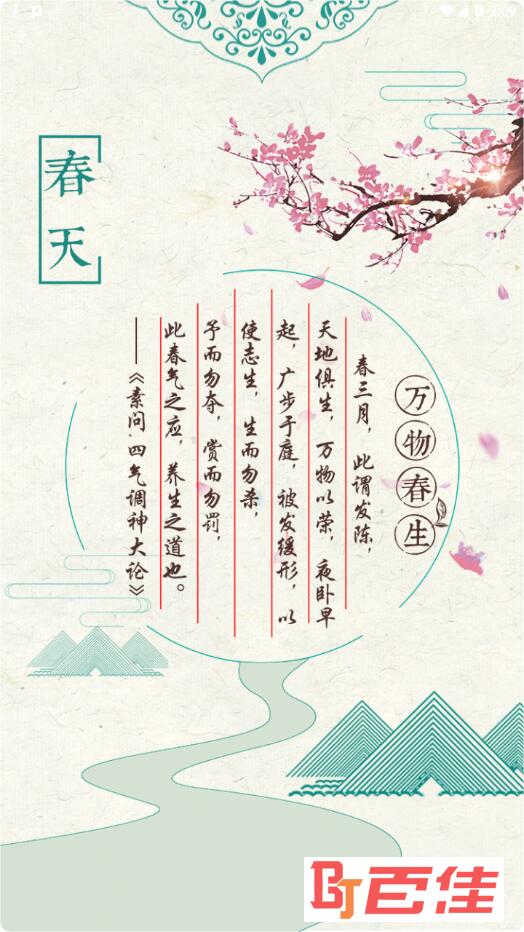 3:09
春天
万物春生
春三月，此谓发陈，
天地俱生，万物以荣，夜卧早
起，广步于庭，被发缓形，以
使志生，生而勿杀，
予而勿夺，赏而勿罚，
此春气之应，养生之道也。
——《素问·四气调神大论》
BJ百佳